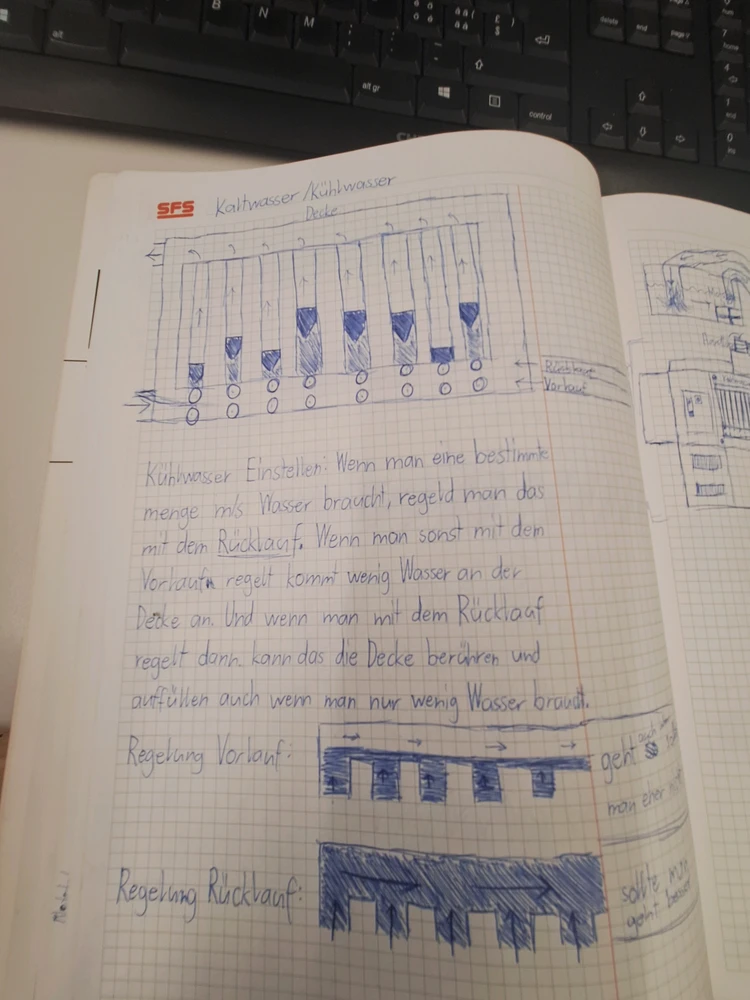 B N M
alt
alt gr
control
delete
end
page
end
7
home
4
1
end
0
ins
SFS Kaltwasser/Kühlwasser
Decke
Rücklauf
Vorlauf
Kühlwasser Einstellen: Wenn man eine bestimmte
menge m/s Wasser braucht, regeld man das
mit dem Rücklauf. Wenn man sonst mit dem
Vorlauf regelt kommt wenig Wasser an der
Decke an. Und wenn man mit dem Rücklauf
regelt dann kann das die Decke berühren und
auffüllen auch wenn man nur wenig Wasser braucht.
Regelung Vorlauf:
geht auch
man eher
Regelung Rücklauf:
sollte man
geht besser